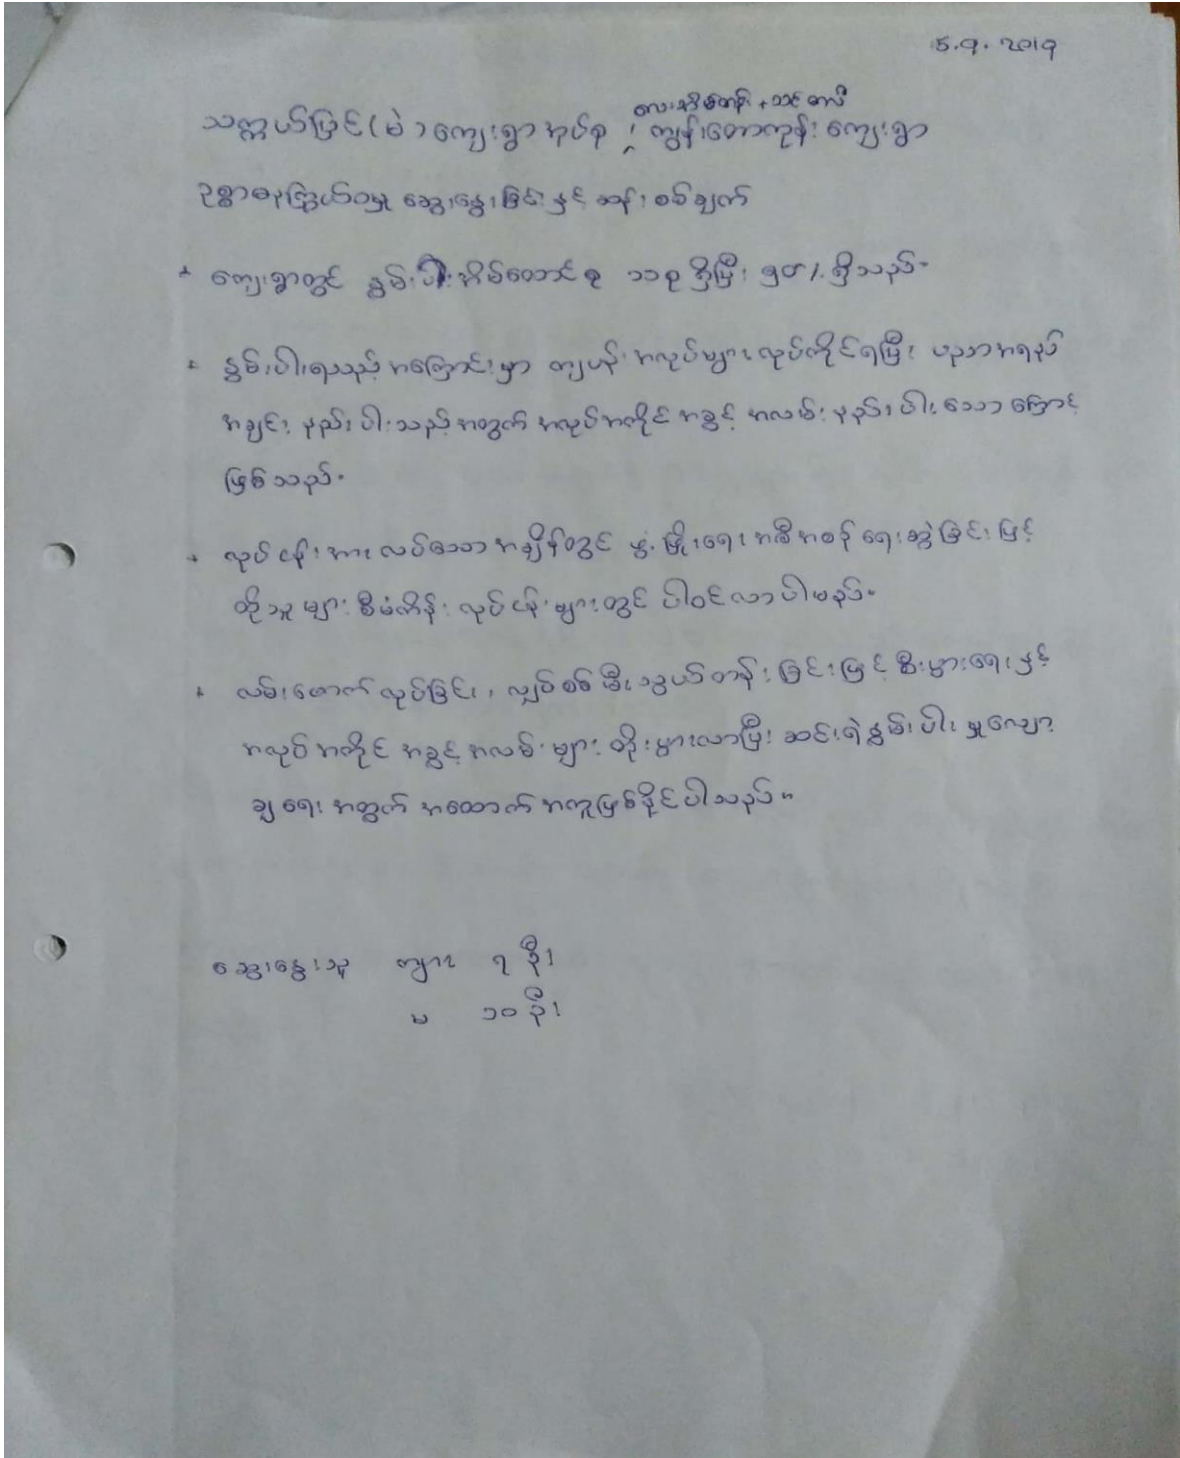 ၆.၅.၂၀၁၅
လေးအိမ်တန်း + သင်တလီ
သက္ကယ်ပြင်(မဲ)ကျေးရွာအုပ်စု၊ ကျွန်းတောကုန်း ကျေးရွာ
ဥစ္စာဓနကြွယ်ဝမှု ဆွေးနွေးခြင်းနှင့် ဆန်းစစ်ချက်
* ကျေးရွာတွင် နွမ်းပါးအိမ်ထောင်စု ၁၁စု ရှိပြီး ၅၀%ရှိသည်။
* နွမ်းပါးရသည့် အကြောင်းမှာ ကျပန်းအလုပ်များ လုပ်ကိုင်ရပြီး ပညာအရည်
အချင်း နည်းပါးသည့်အတွက် အလုပ်အကိုင် အခွင့် အလမ်း နည်းပါးသော ကြောင့်
ဖြစ်သည်။
* လုပ်ငန်း အားလပ်သော အချိန်တွင် ဖွံ့ဖြိုးရေး အစီအစဉ် ရေးဆွဲခြင်းဖြင့်
ထိုသူများ စီမံကိန်း လုပ်ငန်းများတွင် ပါဝင်လာပါမည်။
* လမ်းဖောက်လုပ်ခြင်း၊ လျှပ်စစ်မီးသွယ်တန်းခြင်းဖြင့် စီးပွားရေးနှင့်
အလုပ်အကိုင် အခွင့်အလမ်းများ တိုးပွားလာပြီး ဆင်းရဲနွမ်းပါးမှုလျော့
ချရေးအတွက် အထောက်အကူဖြစ်နိုင်ပါသည်။
ဆွေးနွေးသူ ကျား ၇ ဦး
မ ၁၀ ဦး